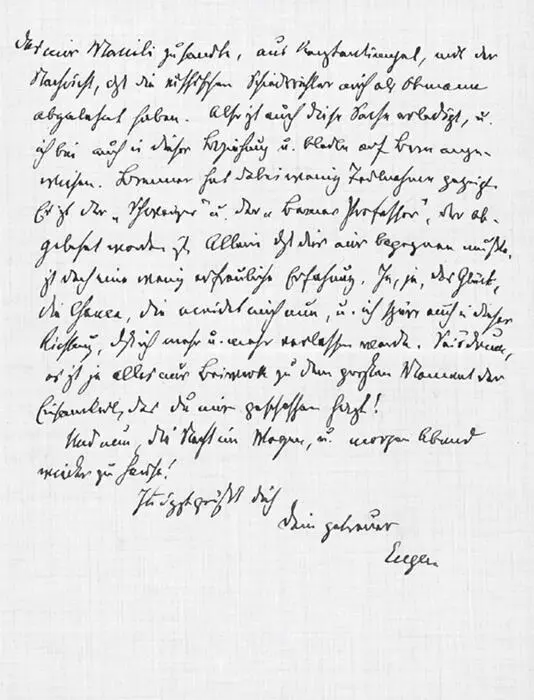 das mir Manili zusandte, aus Konstantinopel, mit der
Nachricht, dass die russischen Schiedsrichter auch als Obmann
abgelehnt haben. Also ist auch diese Sache erledigt, u.
ich bin auch in dieser Beziehung u. bleibe auf Bern ange-
wiesen. Brenner hat dabei wenig Teilnahme gezeigt.
Er ist der „Schweizer" u. der „Berner Professor", der ab-
gelehnt worden ist. Allein dass dies mir begegnen musste,
ist doch eine wenig erfreuliche Erfahrung. Ja, ja, das Glück,
die Chance, die meidet mich nun, u. ich spüre auch in dieser
Richtung, dass ich mehr u. mehr verlassen werde.
es ist ja alles nur Beiwerk zu dem grossen Moment der
Einsamkeit, das du mir geschaffen hast!
Und nun, die Nacht im Wagen, u. morgen Abend
wieder zu Hause!
Innigst grüsst dich
dein getreuer
Eugen